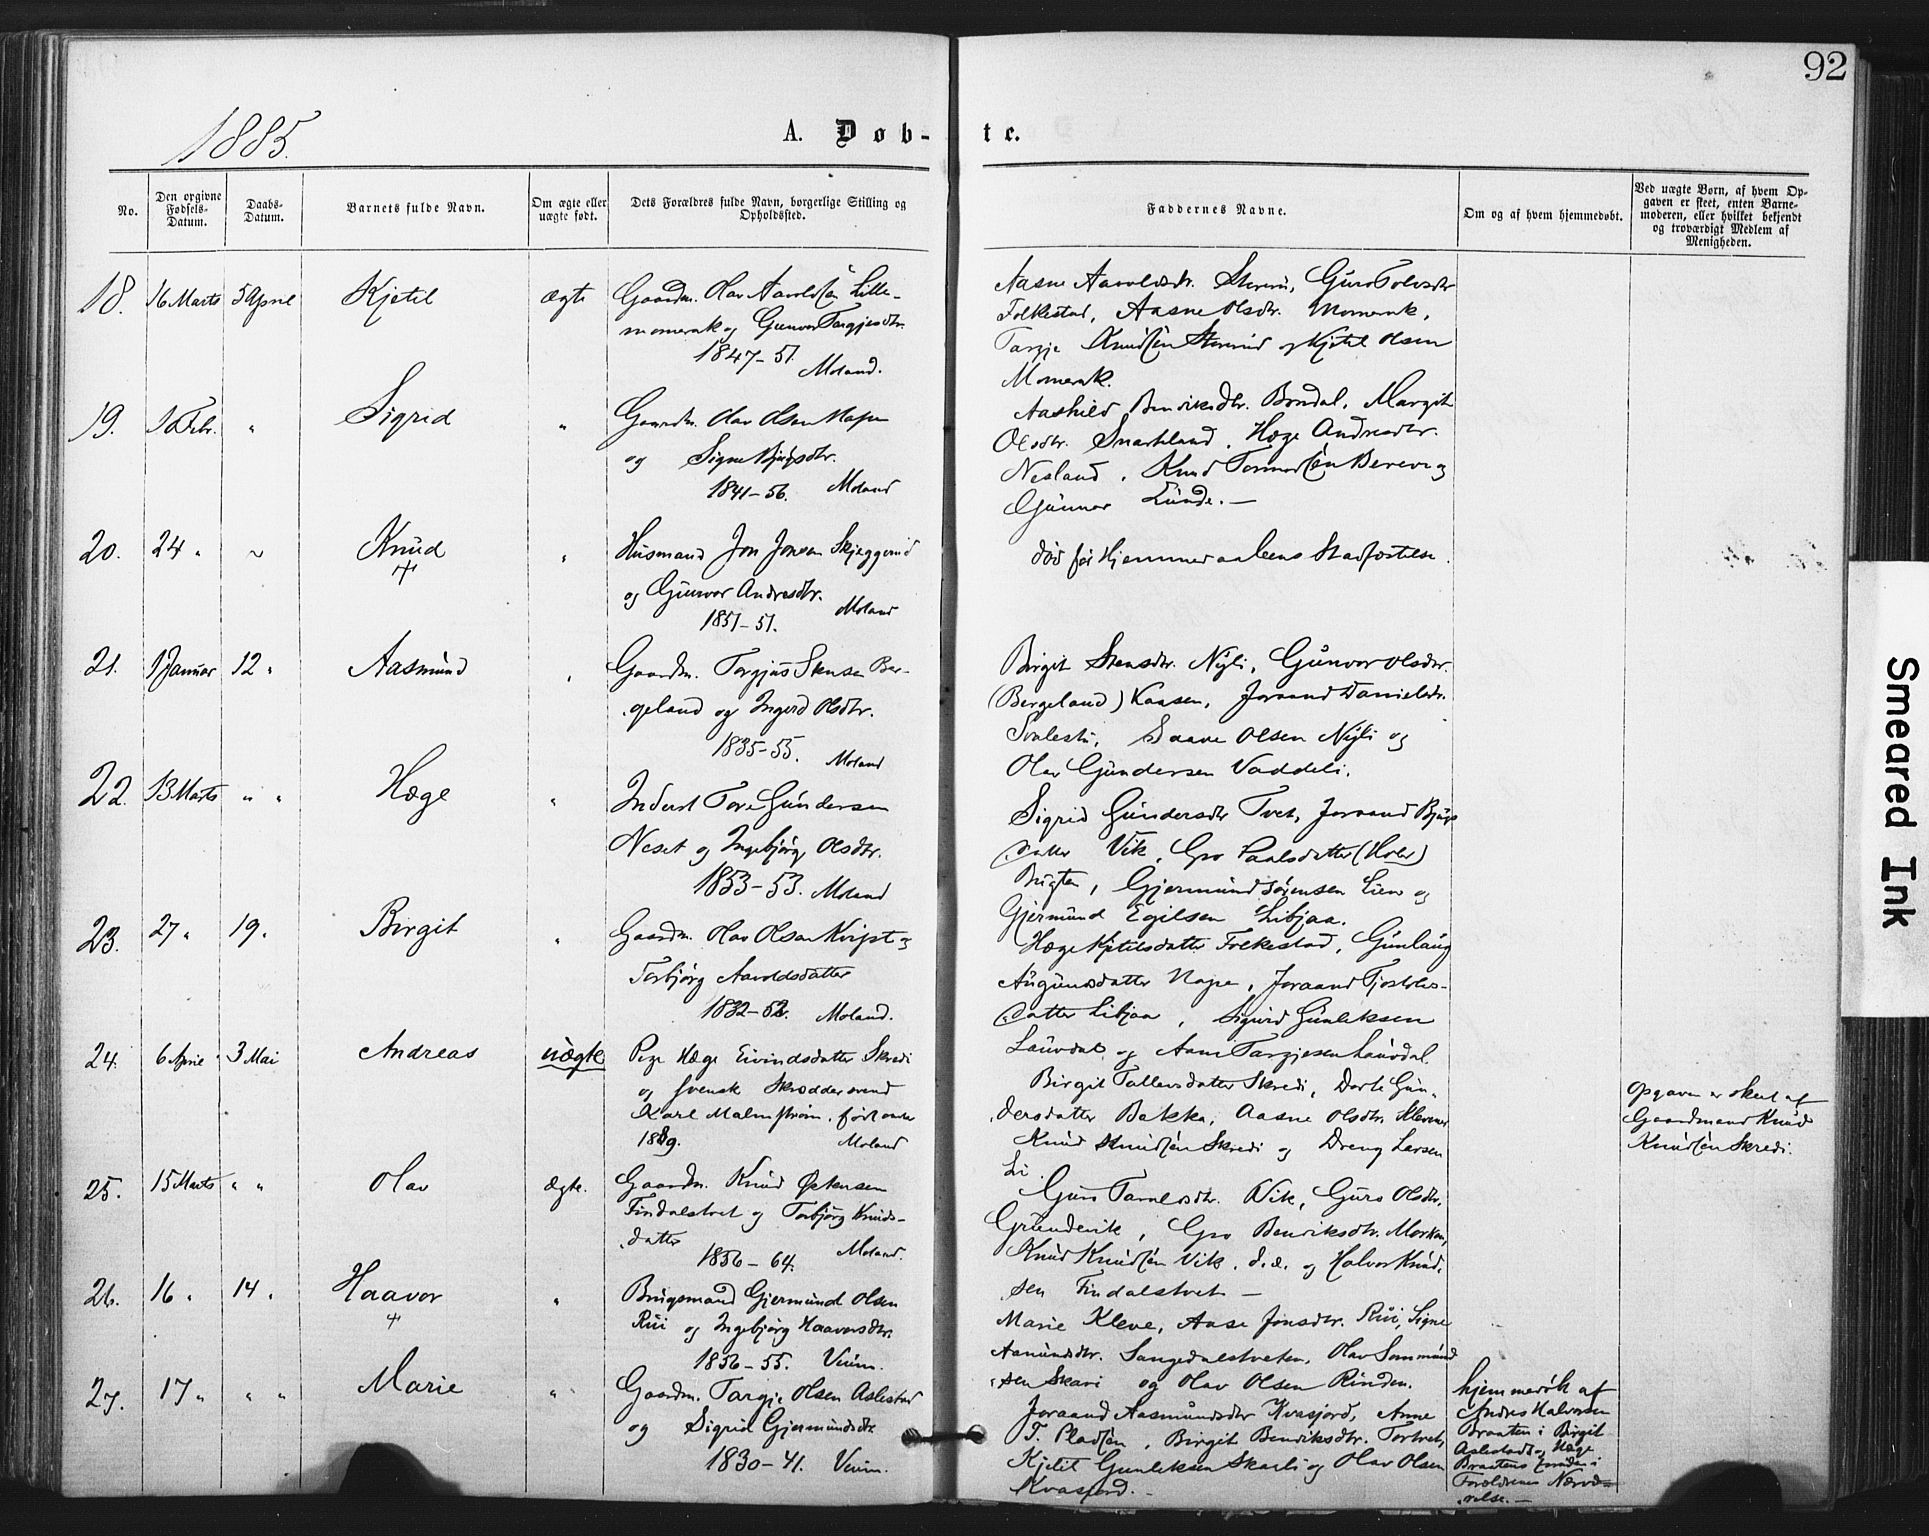 92
1885.
A. Døb-
te.
No.
Den opgivne
Fødsels-
Datum.
Daabs-
Datum.
Barnets fulde Navn.
Om ægte eller
uægte født.
Dets Forældres fulde Navn, borgerlige Stilling og
Opholdssted.
Faddernes Navne.
Om og af hvem hjemmedøbt.
Ved uægte Børn, af hvem Op-
gaven er skeet, enten Barne-
moderen, eller hvilket bekjendt
og troværdigt Medlem af
Menigheden.
18. 16 Marts 5 April Kjetil ægte
Gaardm. Olav Aavoldsen Lille-
momerak og Gunvor Targjesdtr.
1847-51.
Moland.
Aasne Aavoldsdr.
Folkestad, Aasne Olsdtr. Momerak,
Targje Knudsen og Kjetil Olsen
Momerak.
19. Febr. " Sigrid "
Gaardm. Olav Olsen
og Signe
1841-56. Moland
Aashild Margit
Olsdtr. Snartland, Hæge Andresdtr.
Nesland, Knud og
Gunnar Lunde. —
20. 24 " ~ Knud "
Husmand Jon Jonsen Skjeggerud
og Gunvor Andresdtr.
1851-51. Moland
død før Hjemmedaabens Stadfæstelse.
21. 1 Januar 12 " Aasmund "
Gaardm. Torgjus Stensen Ber-
geland og Ingerd Olsdtr.
1835-55. Moland
Birgit Stensdtr. Nyli, Gunvor Olsdtr.
(Bergeland) Kaasen, Joraand Danielsdr.
Saave Olsen Nyli og
Olav Gundersen Vaddeli.
22. 13 Marts " " Hæge "
Inderst Tore Gundersen
Neset og Ingebjørg Olsdtr.
1853-53. Moland
Sigrid Gundersdtr Tvet, Joraand Bjugs
datter Vik, Gro Paalsdatter
Gjermund Sørensen Lien og
Gjermund Egilsen Libjaa.
23. 27 " 19 " Birgit "
Gaardm. Olav Olsen Kvipt og
Torbjørg Aavoldsdatter
1832-52. Moland.
Hæge Kjetilsdatter Folkestad, Gunlaug
Augunsdatter Nape, Joraand
datter Libjaa, Sigurd Gunleksen
Lauvdal og Targjesen Lauvdal.
24. 6 April 3 Mai Andreas uægte
Pige Hæge Eivindsdatter Skredi
og svensk Skræddersvend
Karl Malmstrøm, født
Moland
Birgit Tallevsdatter Skredi, Dorte Gun-
dersdatter Bakka, Aasne Olsdtr.
Knud Knudsen Skredi og Dreng Larsen
Li
Opgaven er skeet af
Gaardmand Knud
Knudsen Skredi.
25. 15 Marts " " Olav ægte.
Gaardm. Knud Østensen
Findalstvet og Torbjørg Knuds-
datter
1856-64. Moland.
Guro Vik, Guro Olsdtr.
Grundevik, Gro Benviksdtr. Morken,
Knud Knudsen Vik, d. æ. og Halvor Knud-
sen Findalstvet —
26. 16 " 14 " Haavor "
Brugsmand Gjermund Olsen
Rui og Ingebjørg Haavorsdtr.
1856-55. Veum.
Marie Kleve, Aase Jonsdtr. Rui, Signe
Olav
sen Skari og Olav Olsen Rinden.
27. 17 " " " Marie "
Gaardm. Targje Olsen Aslestad
og Sigrid Gjermundsdtr
1830-41. Veum.
Joraand Aasmundsdtr Kvasjord, Anne
Birgit Benviksdtr.
Kjetil Gunleksen Skarli og Olav Olsen
Kvasjord. —
hjemmedøbt af
Andres Halvorsen
Braaten i Birgit
Aslestad og Hæge
Braatens
Forældrenes Nærvæ-
relse. —
Smeared Ink